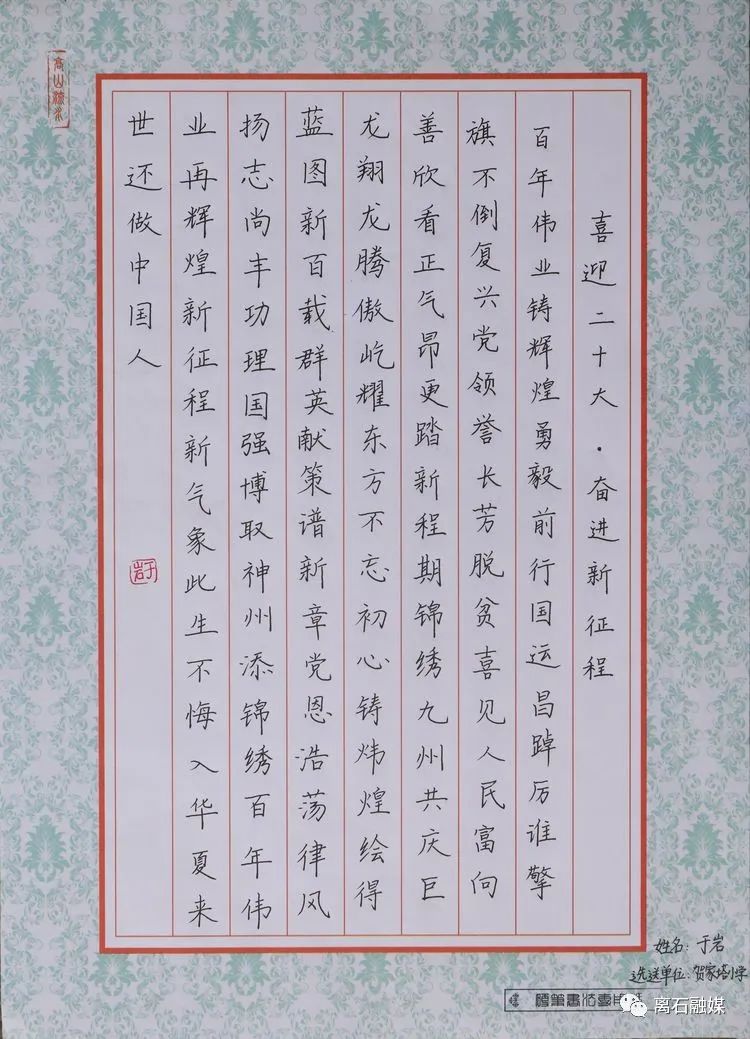 喜迎二十大·奋进新征程
百年伟业铸辉煌勇毅前行国运昌踔厉谁擎
旗不倒复兴党领誉长芳脱贫喜见人民富向
善欣看正气昂更踏新程期锦绣九州共庆巨
龙翔龙腾傲屹耀东方不忘初心铸炜煌绘得
蓝图新百载群英献策谱新章党恩浩荡律风
扬志尚丰功理国强博取神州添锦绣百年伟
业再辉煌新征程新气象此生不悔入华夏来
世还做中国人
于岩
高山流水
姓名:于岩
选送单位:贺家塔小学
离石融媒